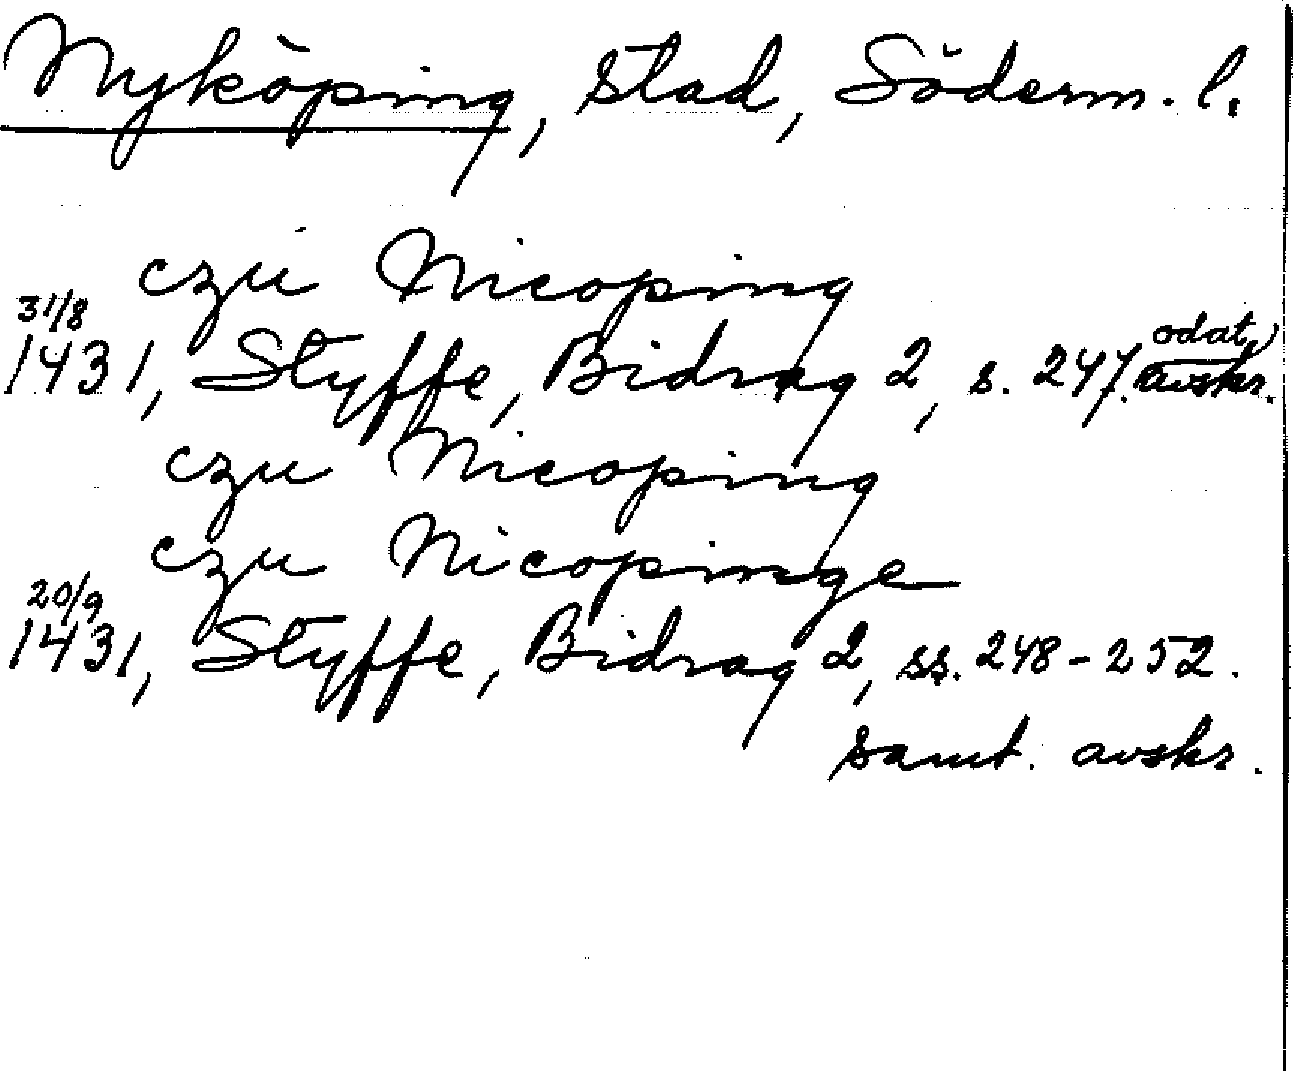 Nyköping, stad, Söderm. l.
czü Nicoping
31/8
1431, Styffe, Bidrag 2, s. 247. odat. avskr.
czu Nicoping
czu Nicopinge
20/9
1431, Styffe, Bidrag 2, ss. 248-252.
samt. avskr.